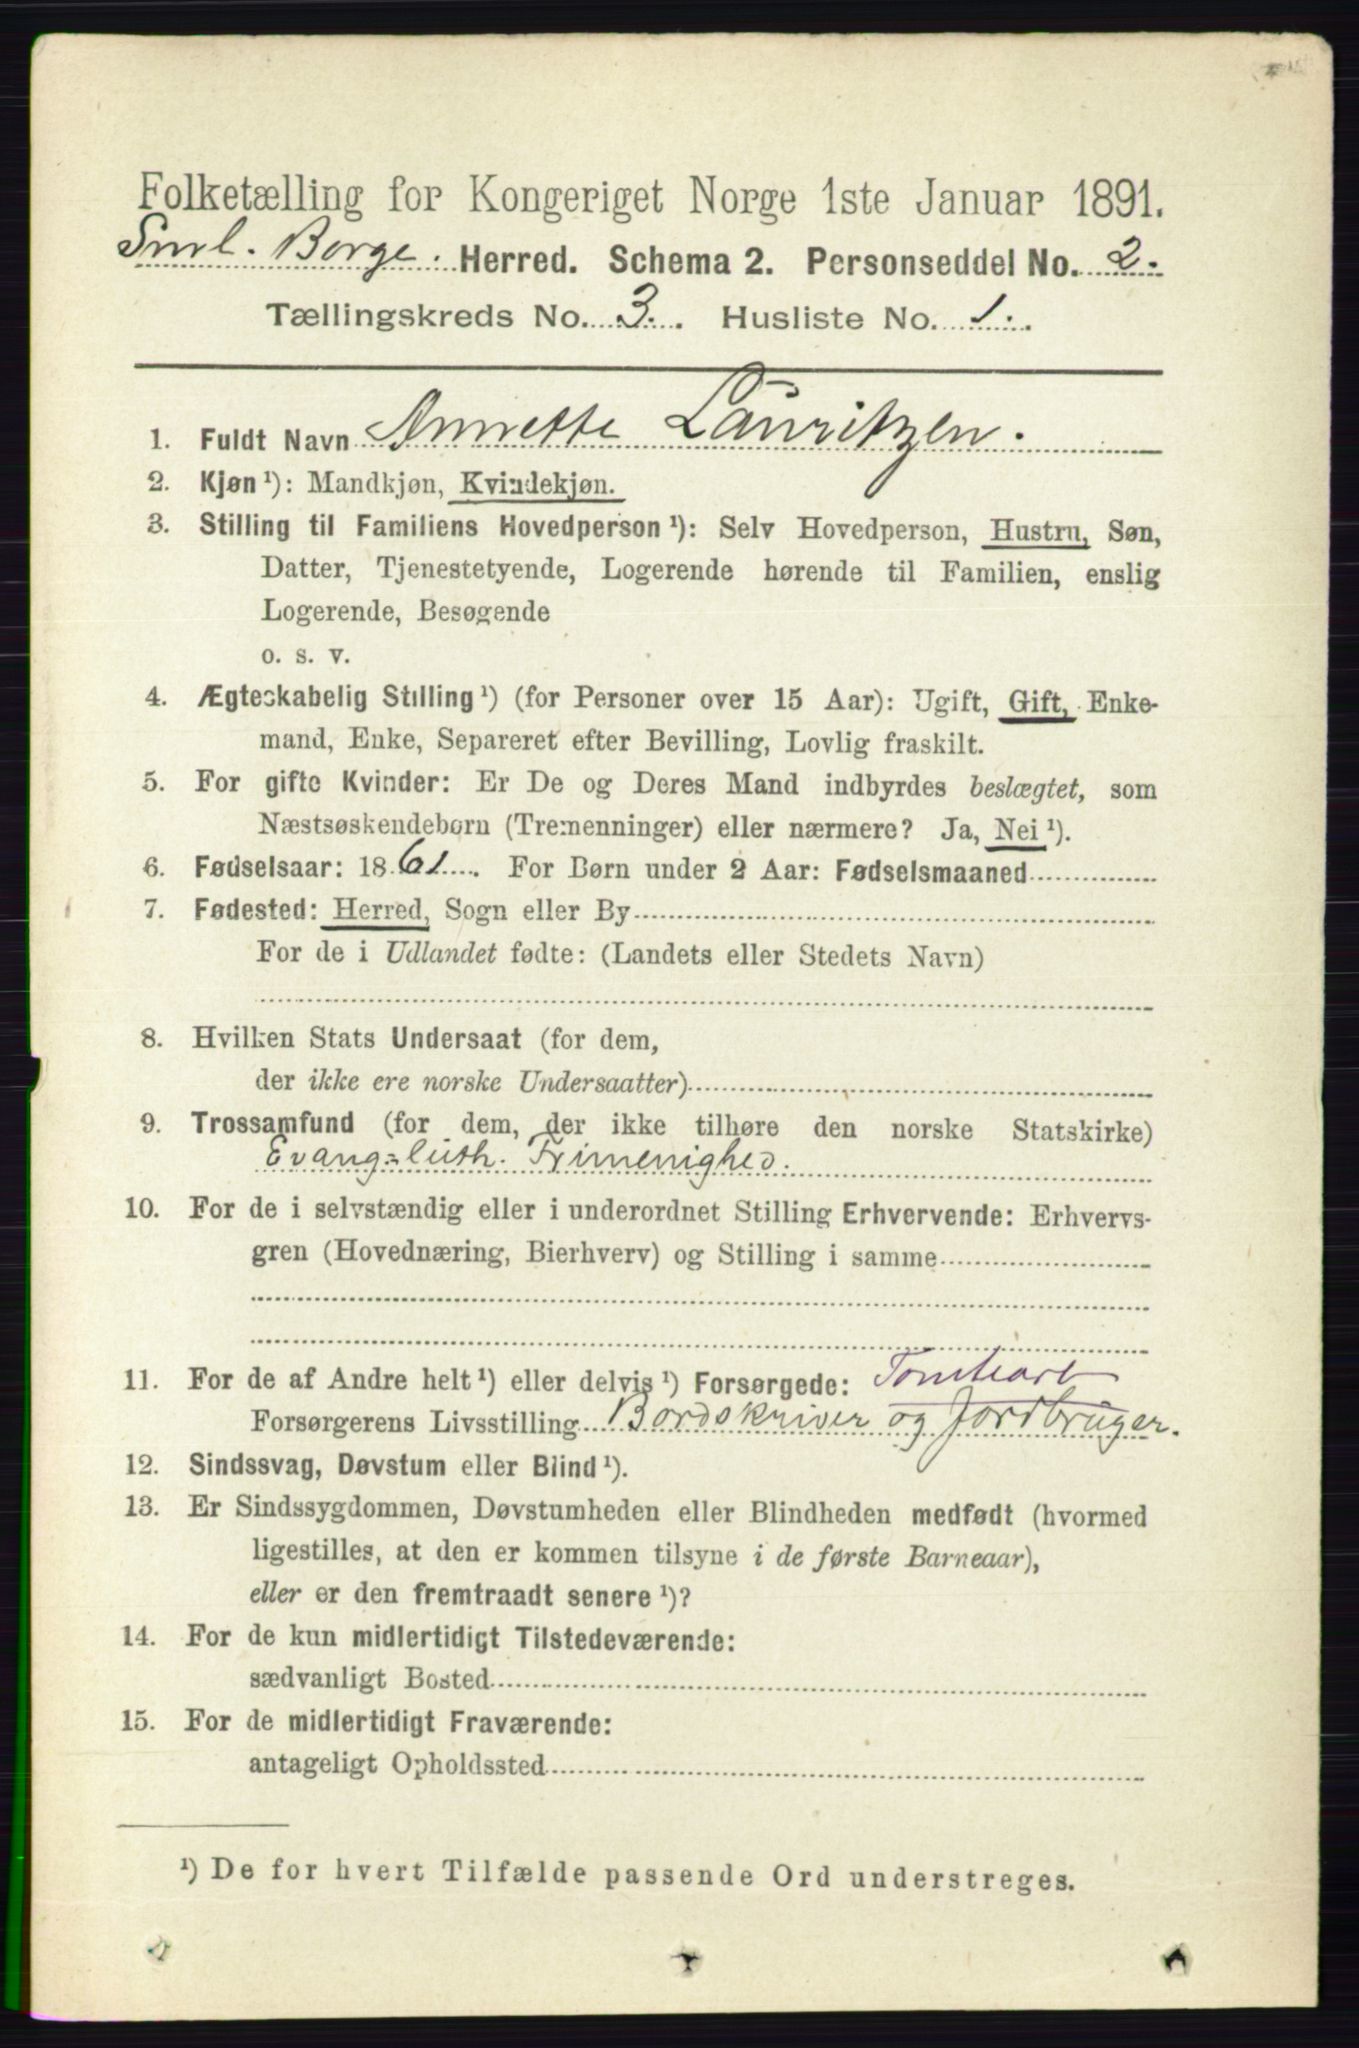 Folketælling for Kongeriget Norge 1ste Januar 1891.
Borge. Herred. Schema 2. Personseddel No. 2.
Tællingskreds No. 3. Husliste No. 1.
1. Fuldt Navn Annette Lauritzen.
2. Kjøn¹): Mandkjøn, Kvindekjøn.
3. Stilling til Familiens Hovedperson¹): Selv Hovedperson, Hustru, Søn,
Datter, Tjenestetyende, Logerende hørende til Familien, enslig
Logerende, Besøgende
o. s. v.
4. Ægteskabelig Stilling¹) (for Personer over 15 Aar): Ugift, Gift, Enke-
mand, Enke, Separeret efter Bevilling, Lovlig fraskilt.
5. For gifte Kvinder: Er De og Deres Mand indbyrdes beslægtet, som
Næstsøskendebørn (Tremenninger) eller nærmere? Ja, Nei¹).
6. Fødselsaar: 1861. For Børn under 2 Aar: Fødselsmaaned
7. Fødested: Herred, Sogn eller By
For de i Udlandet fødte: (Landets eller Stedets Navn)
8. Hvilken Stats Undersaat (for dem,
der ikke ere norske Undersaatter)
9. Trossamfund (for dem, der ikke tilhøre den norske Statskirke)
Evang.-luth. Frimenighed.
10. For de i selvstændig eller i underordnet Stilling Erhvervende: Erhvervs-
gren (Hovednæring, Bierhverv) og Stilling i samme
11. For de af Andre helt¹) eller delvis¹) Forsørgede:
Forsørgerens Livsstilling Bordskriver og Jordbruger.
12. Sindssvag, Døvstum eller Blind¹).
13. Er Sindssygdommen, Døvstumheden eller Blindheden medfødt (hvormed
ligestilles, at den er kommen tilsyne i de første Barneaar),
eller er den fremtraadt senere¹)?
14. For de kun midlertidigt Tilstedeværende:
sædvanligt Bosted
15. For de midlertidigt Fraværende:
antageligt Opholdssted
¹) De for hvert Tilfælde passende Ord understreges.